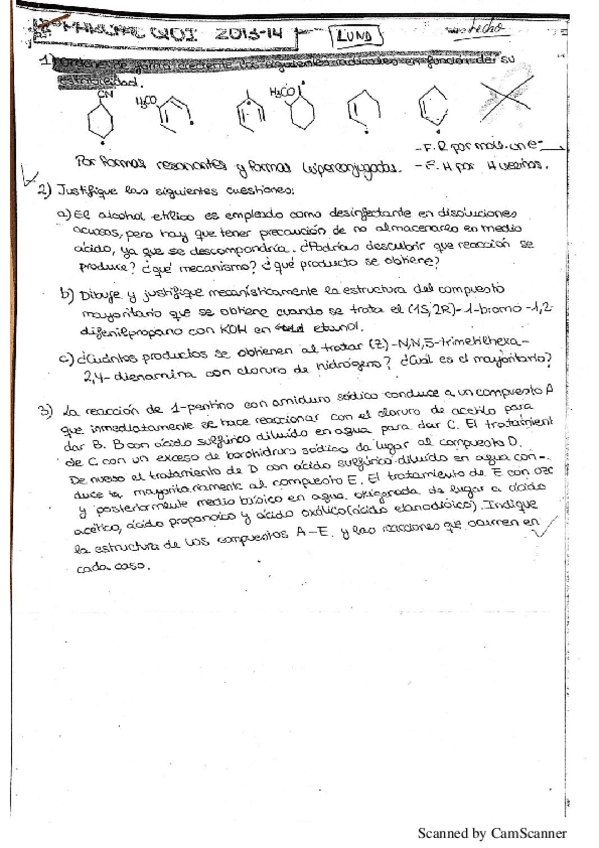 PARCIAL QOI 2013-14 LUND hecho
1) Ordene de forma creciente los siguientes radicales en función de su
estabilidad.
CN H₃CO H₃CO
- F.R por mov. un e-
Por formas resonantes y formas hiperconjugadas. - F.H por H vecinos.
2) Justifique las siguientes cuestiones:
a) El alcohol etílico es empleado como desinfectante en disoluciones
acuosas, pero hay que tener precaución de no almacenarlo en medio
ácido, ya que se descompondría. ¿Podrías descubrir que reacción se
produce? ¿qué mecanismo? ¿qué producto se obtiene?
b) Dibuje y justifique mecanísticamente la estructura del compuesto
mayoritario que se obtiene cuando se trata el (1S, 2R)-1-bromo-1,2-
difenilpropano con KOH en etanol.
c) ¿Cuántos productos se obtienen al tratar (Z)-N,N,5-trimetilhexa-
2,4-dienamina con cloruro de hidrógeno? ¿Cuál es el mayoritario?
3) La reacción de 1-pentino con amiduro sódico conduce a un compuesto A
que inmediatamente se hace reaccionar con el cloruro de acetilo para
dar B. B con ácido sulfúrico diluido en agua para dar C. El tratamient
de C con un exceso de borohidruro sódico da lugar al compuesto D.
De nuevo el tratamiento de D con ácido sulfúrico diluido en agua con-
duce mayoritariamente al compuesto E. El tratamiento de E con ozo
y posteriormente medio básico en agua oxigenada da lugar a ácido
acético, ácido propanoico y ácido oxálico (ácido etanodioico). Indique
la estructura de los compuestos A-E y las reacciones que ocurren en
cada caso.
Scanned by CamScanner